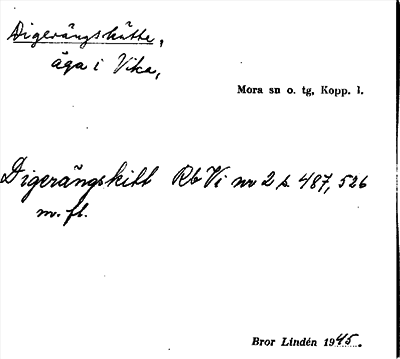 Digerängskätte,
äga i Vika,
Mora sn o. tg, Kopp. l.
Digerängskitt Rb Vi nr 2 s. 487, 526
m. fl.
Bror Lindén 1945.